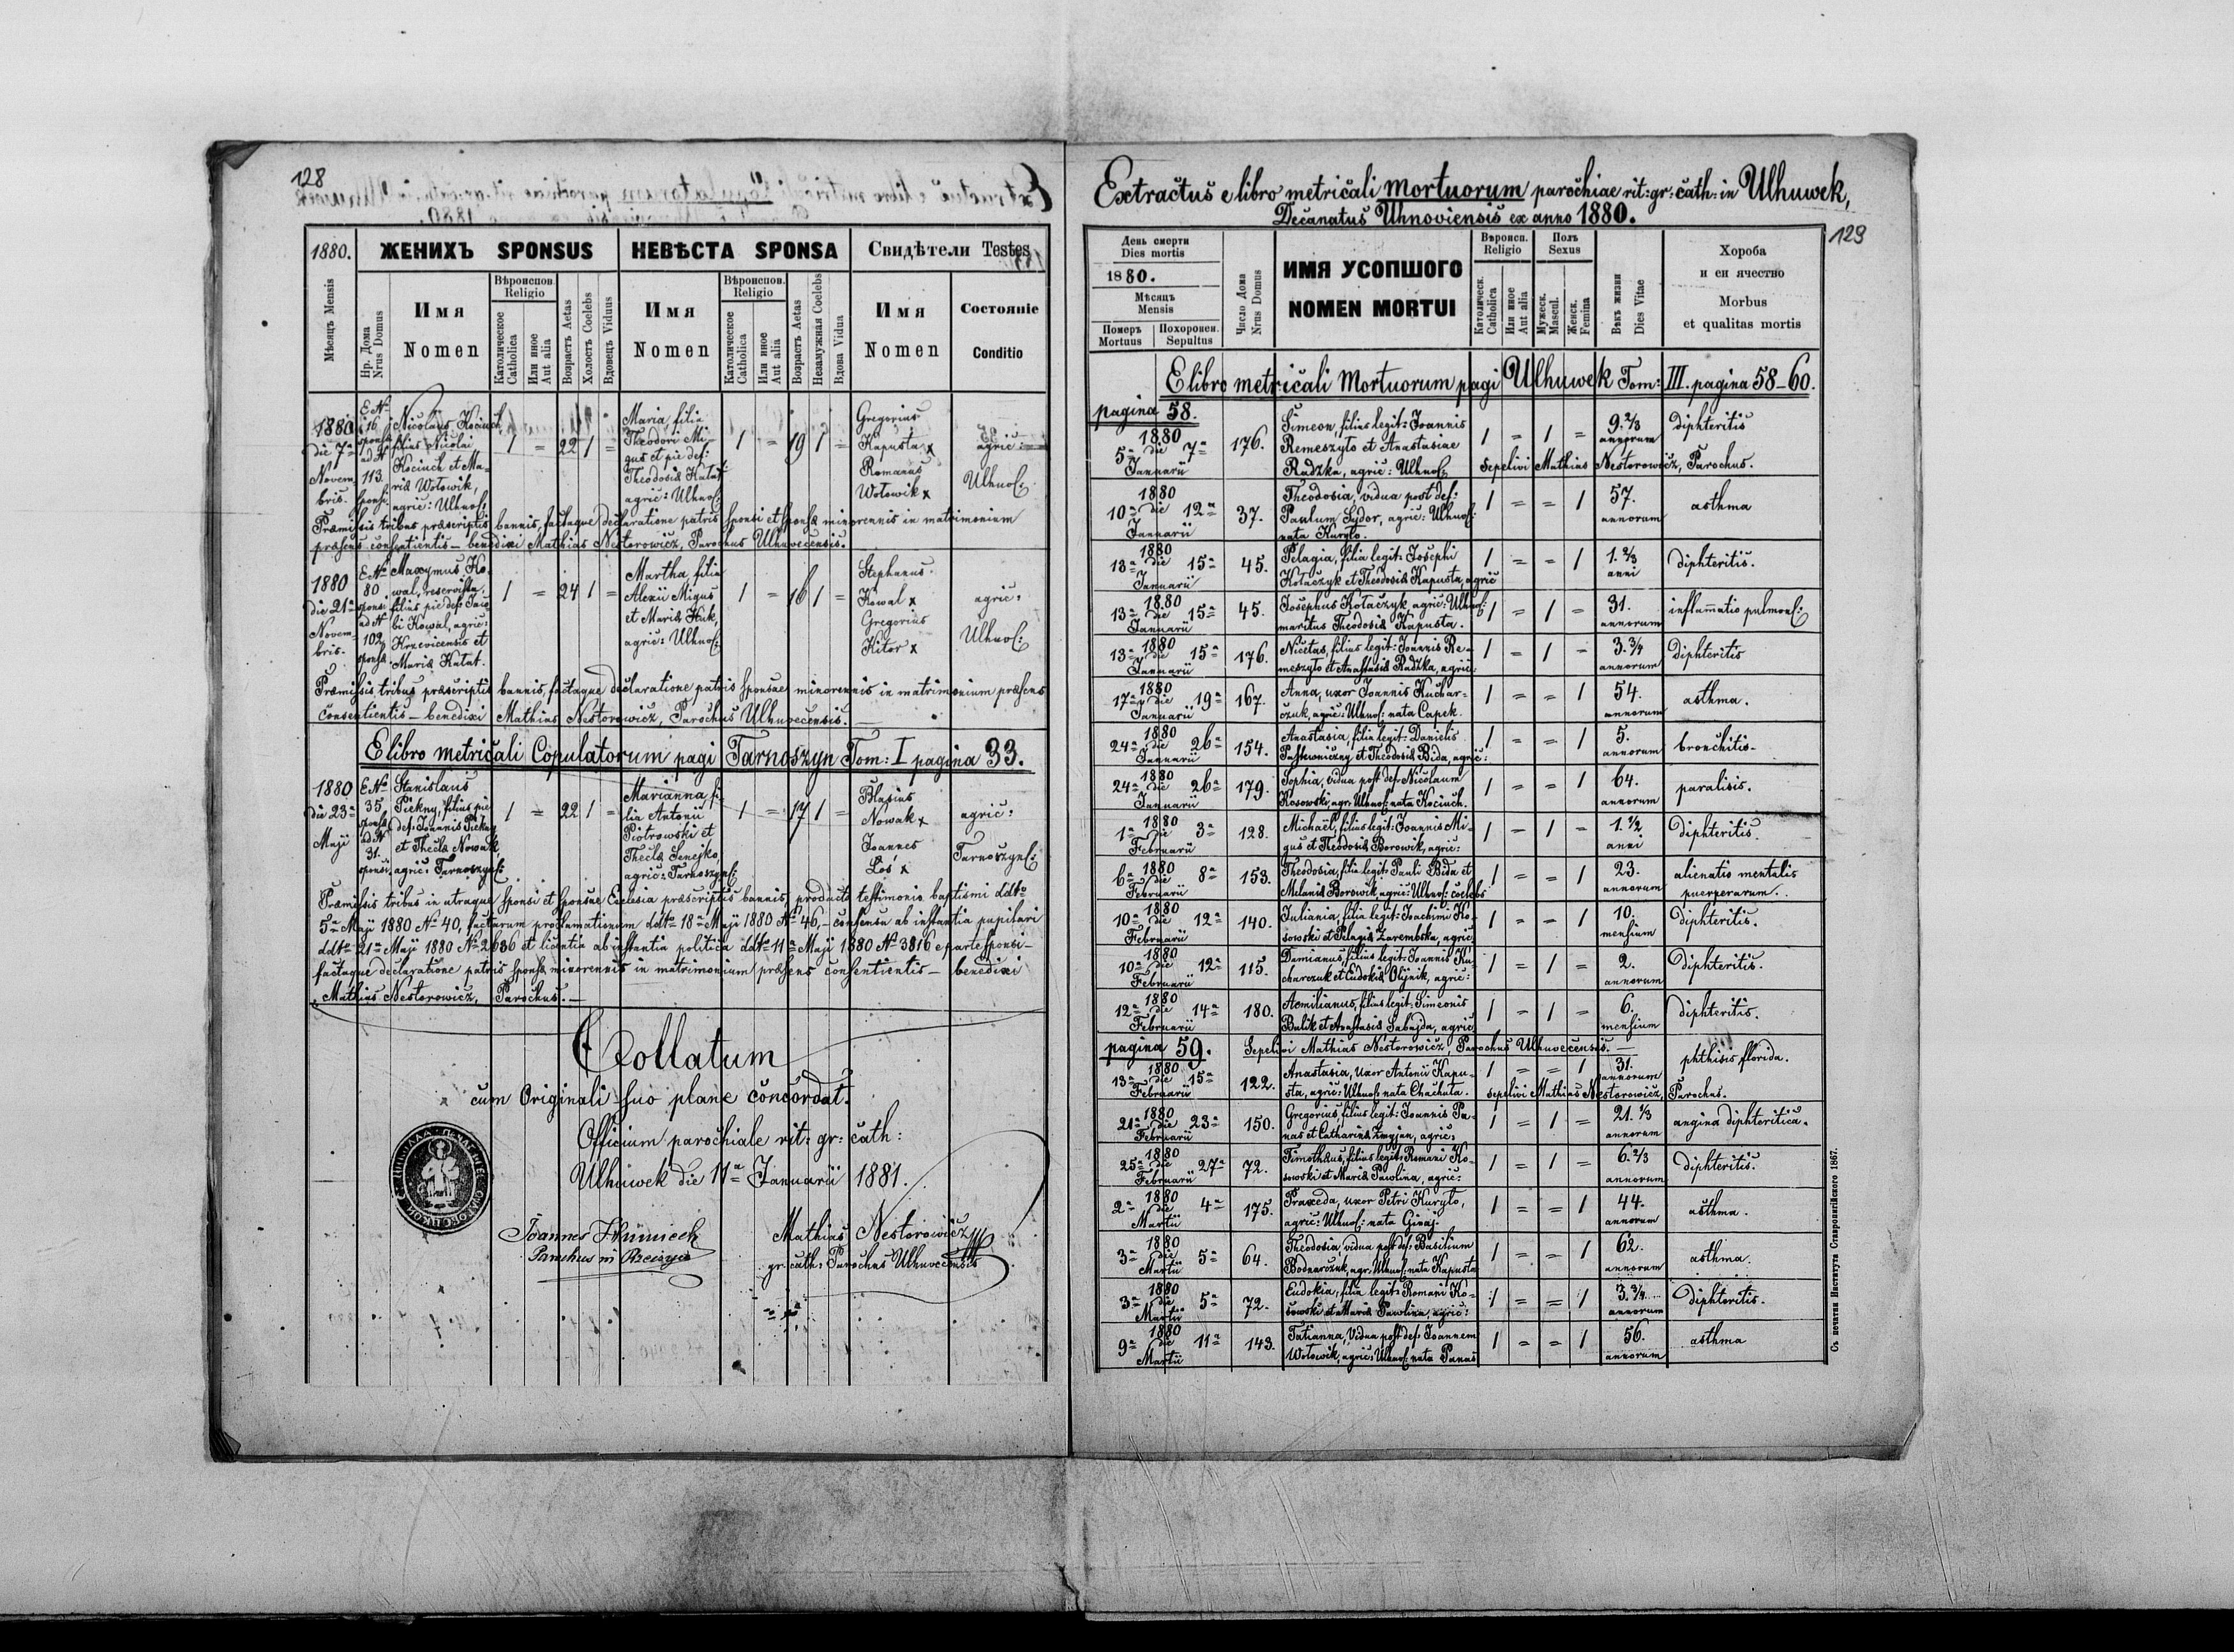 128
1880.
ЖЕНИХЪ SPONSUS
НЕВѢСТА SPONSA
Свидѣтели Testes
Мѣсяцъ Mensis
Нр. Дома
Nrus Domus
Имя
Nomen
Вѣроиспов.
Religio
Католическое
Catholica
Или иное
Aut alia
Возрастъ Aetas
Холостъ Coelebs
Вдовецъ Viduus
Имя
Nomen
Вѣроиспов.
Religio
Католическое
Catholica
Или иное
Aut alia
Возрастъ Aetas
Незамужная Coelebs
Вдова Vidua
Имя
Nomen
Состояніе
Conditio
1880
die 7ª
Novem
bris.
E Nº
16
sponsæ
ad N
113.
sponsi
Nicolaus Kociuch
filius Nicolai
Kociuch et Ma-
riæ Wotowik,
agric: Ulhuof:
1 = 22 1 =
Maria filia
Theodori Mi-
gus et pie def:
Theodosiæ Katat
agric: Ulhuof:
1 = 19 1 =
Gregorius
Kapusta x
Romanus
Wotowik x
agric:
Ulhuof:
Præmissis tribus præscriptis bannis, factaque declaratione patris sponsi et sponsæ minorennis in matrimonium
præsens consentientis – benedixi Mathias Nestorowicz, Parochus Ulhuvecensis.
1880
die 21ª
Novem-
bris.
E Nº
80.
sponsi
ad N
102
sponsæ
Maxymus Ko-
wal, reservista
filius pie def: Jaco
bi Kowal, agric:
Krzevicensis et
Mariæ Katat.
1 = 24 1 =
Martha filia
Alexii Migus
et Mariæ Huk,
agric: Ulhuof:
1 = 16 1 =
Stephanus
Kowal x
Gregorius
Kitor x
agric:
Ulhuof:
Præmissis tribus præscriptis bannis, factaque declaratione patris sponsae minorennis in matrimonium præsens
consentientis – benedixi Mathias Nestorowicz, Parochus Ulhuvecensis.
E libro metricali Copulatorum pagi Tarnoszyn Tom: I pagina 33.
1880
die 23ª
Maji
E Nº
35,
sponsæ
ad N
31.
sponsi
Stanislaus
Piekny, filius pie
def: Joannis Piekny
et Thecla Nowak,
agric: Tarnoszynf:
1 = 22 1 =
Marianna fi-
lia Antonii
Piotrowski et
Theclæ Senejko,
agric: Tarnoszynf:
1 = 17 1 =
Blasius
Nowak x
Joannes
Łoś x
agric:
Tarnoszynf:
Præmissis tribus in utraque sponsi et sponsae Ecclesia præscriptis bannis, producto testimonio baptismi ddto
5ª Maji 1880 Nº 40, factarum proclamationum ddto 18ª Maji 1880 Nº 46, – consensu ab instantia pupilari
ddto 21ª Maji 1880 Nº 2636 et licentia ab instantia politica ddto 11ª Maji 1880 Nº 3816 e parte sponsi –
factaque declaratione patris sponsæ minorennis in matrimonium præsens consentientis – benedixi
Mathias Nestorowicz, Parochus. –
Collatum
cum Originali suo plane concordat.
Officium parochiale rit: gr: cath:
Ulhuwek die 11ª Januarii 1881.
Joannes
Parochus in
Mathias Nestorowicz
gr. cath: Parochus Ulhuvecensis
Extractus e libro metricali mortuorum parochiae rit: gr: cath: in Ulhuwek,
Decanatus Uhnoviensis ex anno 1880.
129
День смерти
Dies mortis
1880.
Мѣсяцъ
Mensis
Померъ
Mortuus
Похоронен.
Sepultus
Число Дома
Nrus Domus
ИМЯ УСОПШОГО
NOMEN MORTUI
Вѣроисп.
Religio
Католическ.
Catholica
Или иное
Aut alia
Полъ
Sexus
Мужеск.
Mascul.
Женск.
Femina
Вѣкъ жизни
Dies Vitae
Хороба
и еи ячество
Morbus
et qualitas mortis
E libro metricali Mortuorum pagi Ulhuwek Tom: III. pagina 58–60.
pagina 58.
1880
5ª die 7ª
Januarii
176.
Simeon, filius legit: Joannis
Remeszyto et Anastasiae
Radzka, agric: Ulhuof:
1 = 1 =
9.2/3
annorum
diphteritis
Sepelivi Mathias Nestorowicz, Parochus.
1880
10ª die 12ª
Januarii
37.
Theodosia, vidua post def:
Paulum Sydor, agric: Ulhuof:
nata Kuryto.
1 = = 1
57.
annorum
asthma
1880
13ª die 15ª
Januarii
45.
Pelagia, filia legit: Josephi
Kotaczyk et Theodosiæ Kapusta, agric
1 = = 1
1.2/3
anni
diphteritis.
1880
13ª die 15ª
Januarii
45.
Josephus Kotaczyk agric: Ulhuof:
maritus Theodosiæ Kapusta.
1 = 1 =
31.
annorum
inflammatio pulmonf:
1880
13ª die 15ª
Januarii
176.
Nicetas, filius legit: Joannis Re-
meszyto et Anastasiæ Radzka, agric:
1 = 1 =
3.3/4
annorum
diphteritis
1880
17ª die 19ª
Januarii
167.
Anna, uxor Joannis Kuchar-
czuk, agric: Ulhuof: nata Capek.
1 = = 1
54.
annorum
asthma.
1880
24ª die 26ª
Januarii
154.
Anastasia, filia legit: Danielis
Pasternicany et Theodosiæ Bida, agric:
1 = = 1
5.
annorum
bronchitis.
1880
24ª die 26ª
Januarii
179.
Sophia, vidua post def: Nicolaum
Kosowski, agr. Ulhuof: nata Kociuch.
1 = = 1
64.
annorum
paralisis.
1880
1ª die 3ª
Februarii
128.
Michaël, filius legit: Joannis Mi-
gus et Theodosiæ Borowik, agric:
1 = 1 =
1.1/2
anni
diphteritis
1880
6ª die 8ª
Februarii
153.
Theodosia, filia legit: Pauli Bida et
Melaniæ Borowik, agric: Ulhuof: coelebs
1 = = 1
23.
annorum
alienatio mentalis
puerperarum.
1880
10ª die 12ª
Februarii
140.
Juliania, filia legit: Joachimi Ko-
sowski et Pelagiæ Zarembska, agric:
1 = = 1
10.
mensium
diphteritis.
1880
10ª die 12ª
Februarii
115.
Damianus, filius legit: Joannis Ku-
charczuk et Eudokiæ Olijnik, agric:
1 = 1 =
2.
annorum
diphteritis.
1880
12ª die 14ª
Februarii
180.
Aemilianus, filius legit: Simeonis
Bulik et Anastasiæ Sabajda, agric:
1 = 1 =
6.
mensium
diphteritis.
pagina 59.
Sepelivi Mathias Nestorowicz, Parochus Ulhuvecensis.
1880
13ª die 15ª
Februarii
122.
Anastasia, uxor Antonii Kapu-
sta, agric: Ulhuof: nata Chachuta.
1 = = 1
31.
annorum
phthisis florida.
Sepelivi Mathias Nestorowicz, Parochus.
1880
21ª die 23ª
Februarii
150.
Gregorius, filius legit: Joannis Pa-
nas et Catharinæ Zmyjan, agric:
1 = 1 =
21.1/3
annorum
angina diphteritica.
1880
25ª die 27ª
Februarii
72.
Timothæus, filius legit: Romani Ko-
sowski et Mariæ Pawlina, agric:
1 = 1 =
6.2/3
annorum
diphteritis.
1880
2ª die 4ª
Martii
175.
Praxeda, uxor Petri Kuryto,
agric: Ulhuof: nata Giraj.
1 = = 1
44.
annorum
asthma.
1880
3ª die 5ª
Martii
64.
Theodosia, vidua post def: Basilium
Bodnarczuk, agr. Ulhuof: nata Kapusta
1 = = 1
62.
annorum
asthma.
1880
3ª die 5ª
Martii
72.
Eudokia, filia legit: Romani Ko-
sowski et Mariæ Pawlina, agric:
1 = = 1
3.3/4
annorum
diphteritis.
1880
9ª die 11ª
Martii
143.
Tatianna, Vidua post def: Joannem
Wotowik, agric: Ulhuof: nata Panas
1 = = 1
56.
annorum
asthma
Съ печатни Института Ставропигійского 1867.